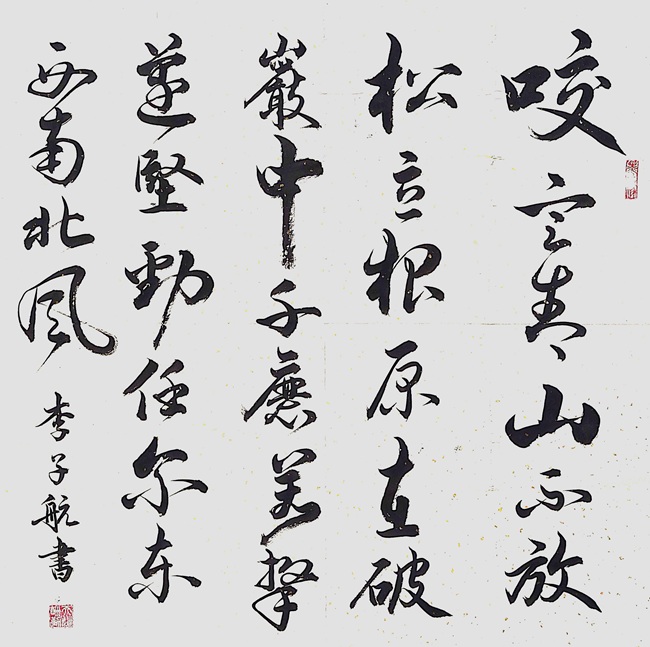 咬定青山不放
松立根原在破
巖中千磨萬擊
還堅勁任尔东
西南北風
李子航書